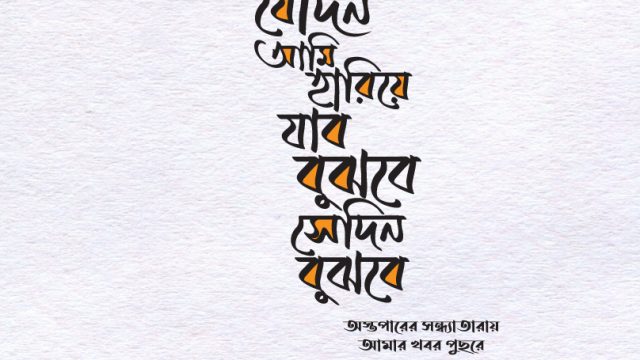 যেদিন
আমি
হারিয়ে
যাব
বুঝবে
সেদিন
বুঝবে
অস্তপারের সন্ধ্যাতারায়
আমার খবর পুছবে